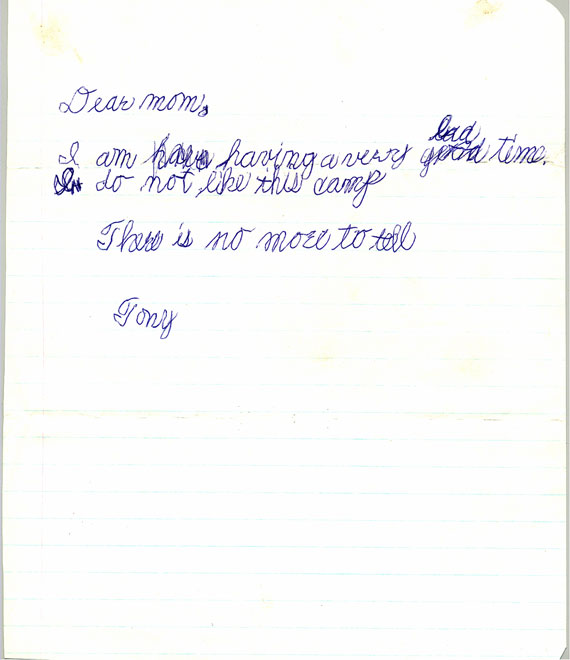 Dear mom,
I am having a very bad time.
I do not like this camp
There is no more to tell
Tony